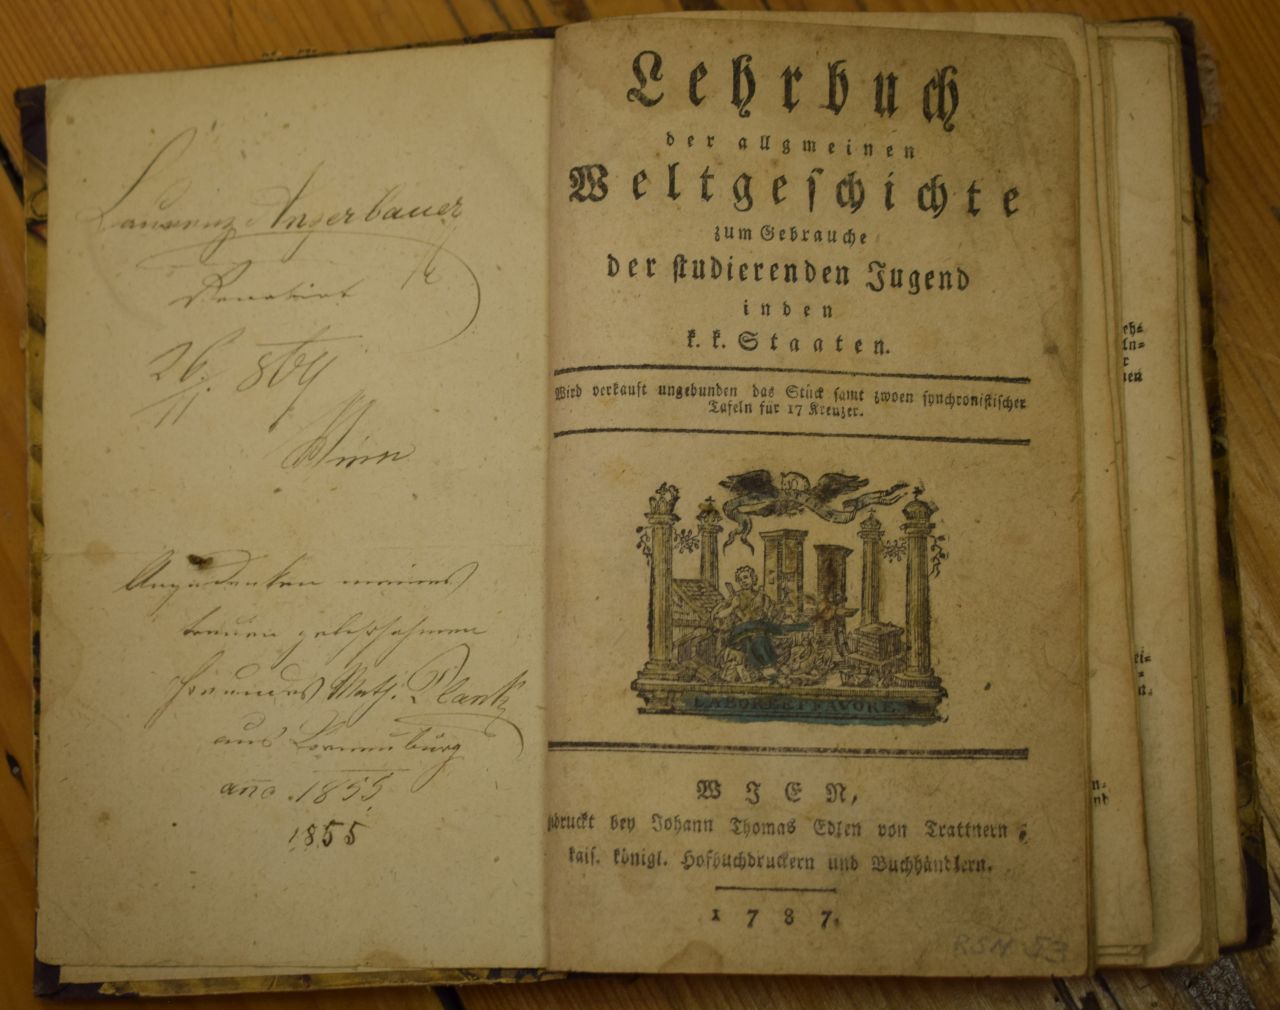 Laurenz Angerbauer
Renovirt
26. 869
11
Wien
Angedenken meines
treuen
Freundes Math. Plank
aus Korneuburg
año 1855
1855
Lehrbuch
der allgmeinen
Weltgeschichte
zum Gebrauche
der studierenden Jugend
in den
k. k. Staaten.
Wird verkauft ungebunden das Stück samt zwoen synchronistischer
Tafeln für 17 Kreuzer.
LABORE ET FAVORE
WIEN,
gedruckt bey Johann Thomas Edlen von Trattnern,
kais. königl. Hofbuchdruckern und Buchhändlern.
1787.
RSN 53